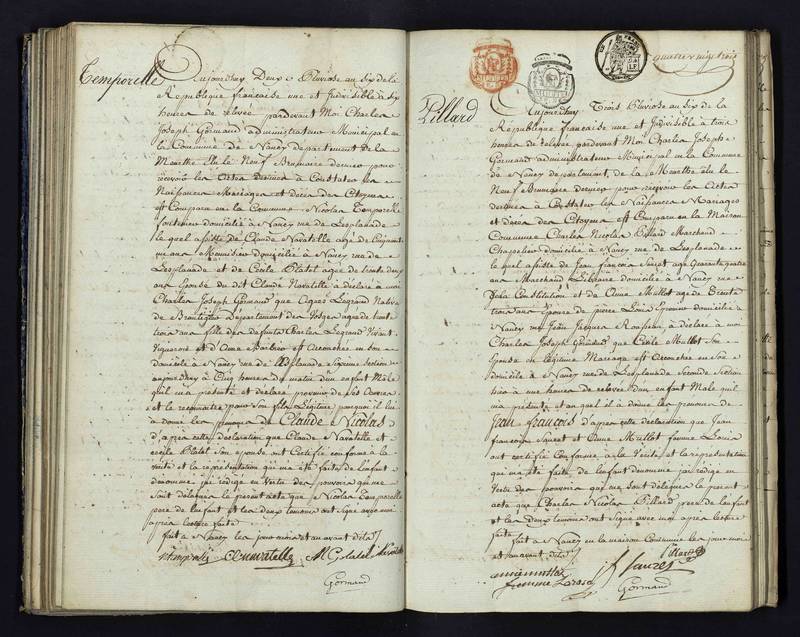 Temporelle
aujourdhuy Deux Pluviose au six de la
République française une et Indivisible à six
heures de relevée pardevant Moi Charles
Joseph Gormand administrateur Municipal en
la Commune de Nancy departement de la
Meurthe Elu le Neuf Brumaire dernier pour
recevoir les Actes destinés à Constater les
Naissances Mariages et décès des Citoyens
est Comparu en la Commune Nicolas Temporelle
domicilié à Nancy rue de Lesplanade
le quel assisté de Claude Navatelle agé de Cinquante
un ans Menuisier domicilié à Nancy rue de
Lesplanade et de Cécile Platel agée de trente deux
ans Epouse du dit Claude Navatelle à déclaré à moi
Charles Joseph Gormand que Agnes Legrand Native
de Département des Vosges agée de trente
trois ans fille des defunts Charles Legrand Vivant
Vigneron et d'Anne Barbier est accouchée en son
domicile à Nancy rue de l'Esplanade Sixieme Section
aujourdhuy à Cinq heures du matin d'un enfant Mâle
qu'il m'a présenté et declaré provenir de Ses Oeuvres
et le reconnaitre pour son fils Légitime auquel il lui
a donné les prenoms de Claude Nicolas
d'après cette déclaration que Claude Navatelle et
cécile Platel Son épouse ont Certifié conforme à la
verité et la représentation qui m'a été faite de l'enfant
denommé jai rédigé en Vertu des pouvoirs qui me
Sont délégués le présent acte que Nicolas Temporelle
pere de l'enfant et les deux temoins ont Signé avec moi
après lecture faite
fait à Nancy les jour mois et an avant dits
N temporelle C Navatelle M C platel
Gormand
quatre vingt trois
Pillard
Aujourdhuy Trois Pluviose au six de la
République française une et Indivisible à trois
heures de relevée pardevant Moi Charles Joseph
Gormand administrateur Municipal en la Commune
de Nancy departement de la Meurthe élu le
Neuf Brumaire dernier pour recevoir les Actes
destinés à Constater les Naissances Mariages
et décès des Citoyens est Comparu en la Maison
Commune Charles Nicolas Pillard Marchand
Chapelier domicilié à Nancy rue de Lesplanade
le quel assisté de Jean françois agé Quarante quatre
ans Marchand Libraire domicilié à Nancy rue
de la Constitution et de Anne Mullot agée de Trente
trois ans Epouse de pierre Louis domiciliée à
Nancy rue Jean Jacques Rousseau à déclaré à moi
Charles Joseph Gormand que Cécile Mullot Son
Epouse en légitime Mariage est Accouchée en Son
domicile à Nancy rue de Lesplanade Seconde Section
à une heure de relevée d'un enfant Male quil
m'a présenté et au quel il à donné les prenoms de
Jean françois d'après cette déclaration que Jean
françois et Anne Mullot femme Louis
ont certifié Conforme à la Verité et la représentation
qui m'a été faite de l'enfant denommé jai rédigé en
Vertu des pouvoirs qui me sont délégués le présent
acte que Charles Nicolas Pillard pere de l'enfant
et les Deux temoins ont Signé avec moi après lecture
faite
fait à Nancy en la maison Commune les jour mois
et an avant dits
Pillard
anne mullot
femme
Gormand